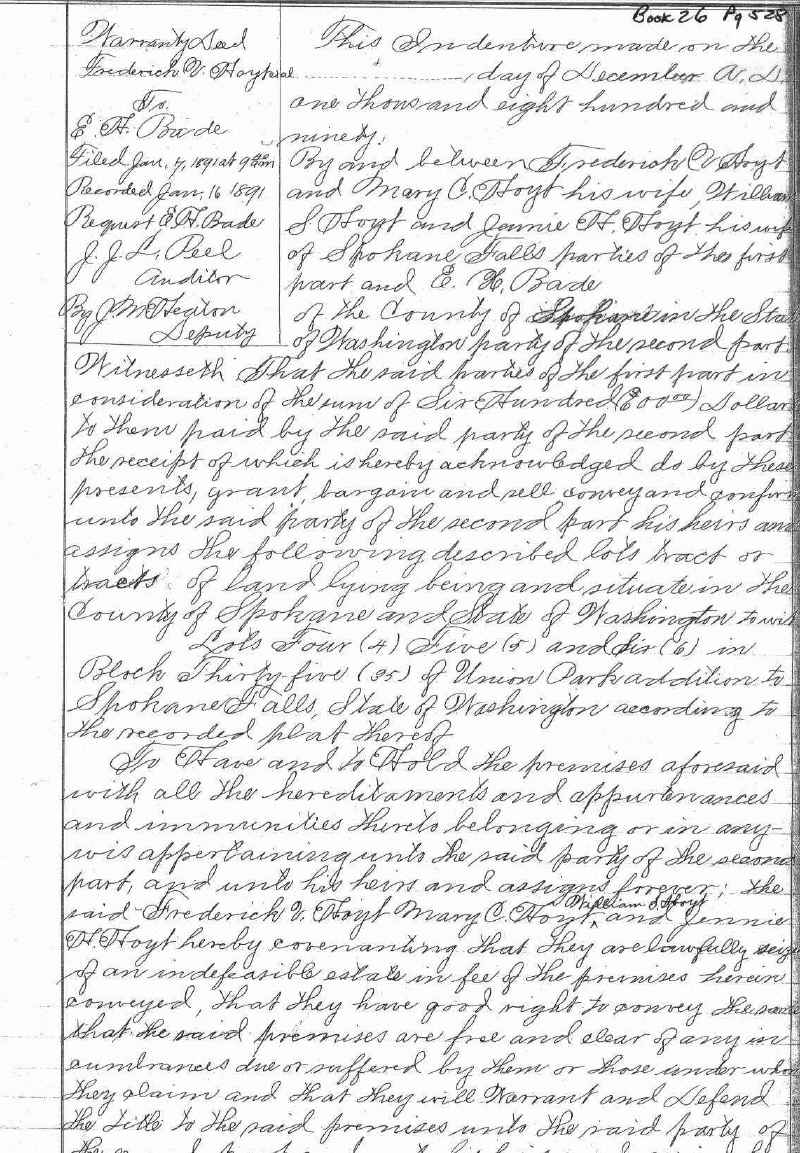 Book 26 Pg 528
Warranty Deed
Frederick V. Hoyt et al
To.
E. H. Bade
Filed Jan. 7, 1891 at 9
Recorded Jan. 16 1891
Request E. H. Bade
J. J. L. Peel
Auditor
By J M Heaton
Deputy
This Indenture made on the
, day of December A. D.
one thousand eight hundred and
ninety.
By and between Frederick V Hoyt
and Mary C. Hoyt his wife, William
S Hoyt and Jennie H. Hoyt, his wife
of Spokane Falls parties of the first
part and E. H. Bade
of the County of Spokane in the Sta
of Washington party of the second part.
Witnesseth That the said parties of the first part in
consideration of the sum of Six Hundred (600 00) Dollar
to them paid by the said party of the second part
the receipt of which is hereby acknowledged do by these
presents, grant, bargain and sell convey and confirm
unto the said party of the second part his heirs and
assigns the following described lots tract or
tracts of land lying being and situate in the
County of Spokane and State of Washington to wit
Lots Four (4) Five (5) and Six (6) in
Block Thirty five (35) of Union Park addition to
Spokane Falls, State of Washington according to
the recorded plat thereof
To Have and to Hold the premises aforesaid
with all the hereditaments and appurtenances
and immunities thereto belonging or in any-
wis appertaining unto the said party of the second
part, and unto his heirs and assigns forever; the
said Frederick V. Hoyt Mary C. Hoyt, William S Hoyt and Jennie
H. Hoyt hereby covenanting that they are lawfully seize
of an indefeasible estate in fee of the premises herein
conveyed, that they have good right to convey the same
that the said premises are free and clear of any in
cumbrances due or suffered by them or those under whom
they claim and that they will Warrant and Defend
the title to the said premises unto the said party of